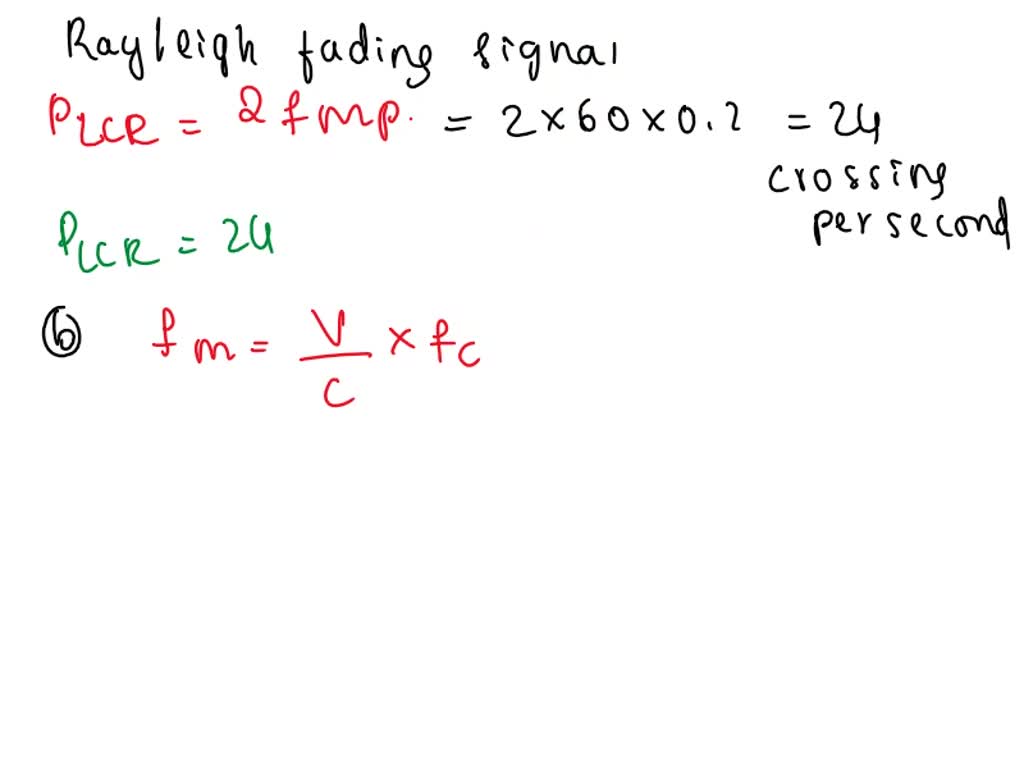 Rayleigh fading signal
PLCR = 2 fmp. = 2 x 60 x 0.2 = 24
crossing
per second
PLCR = 24
(b) fm = V/C x fc